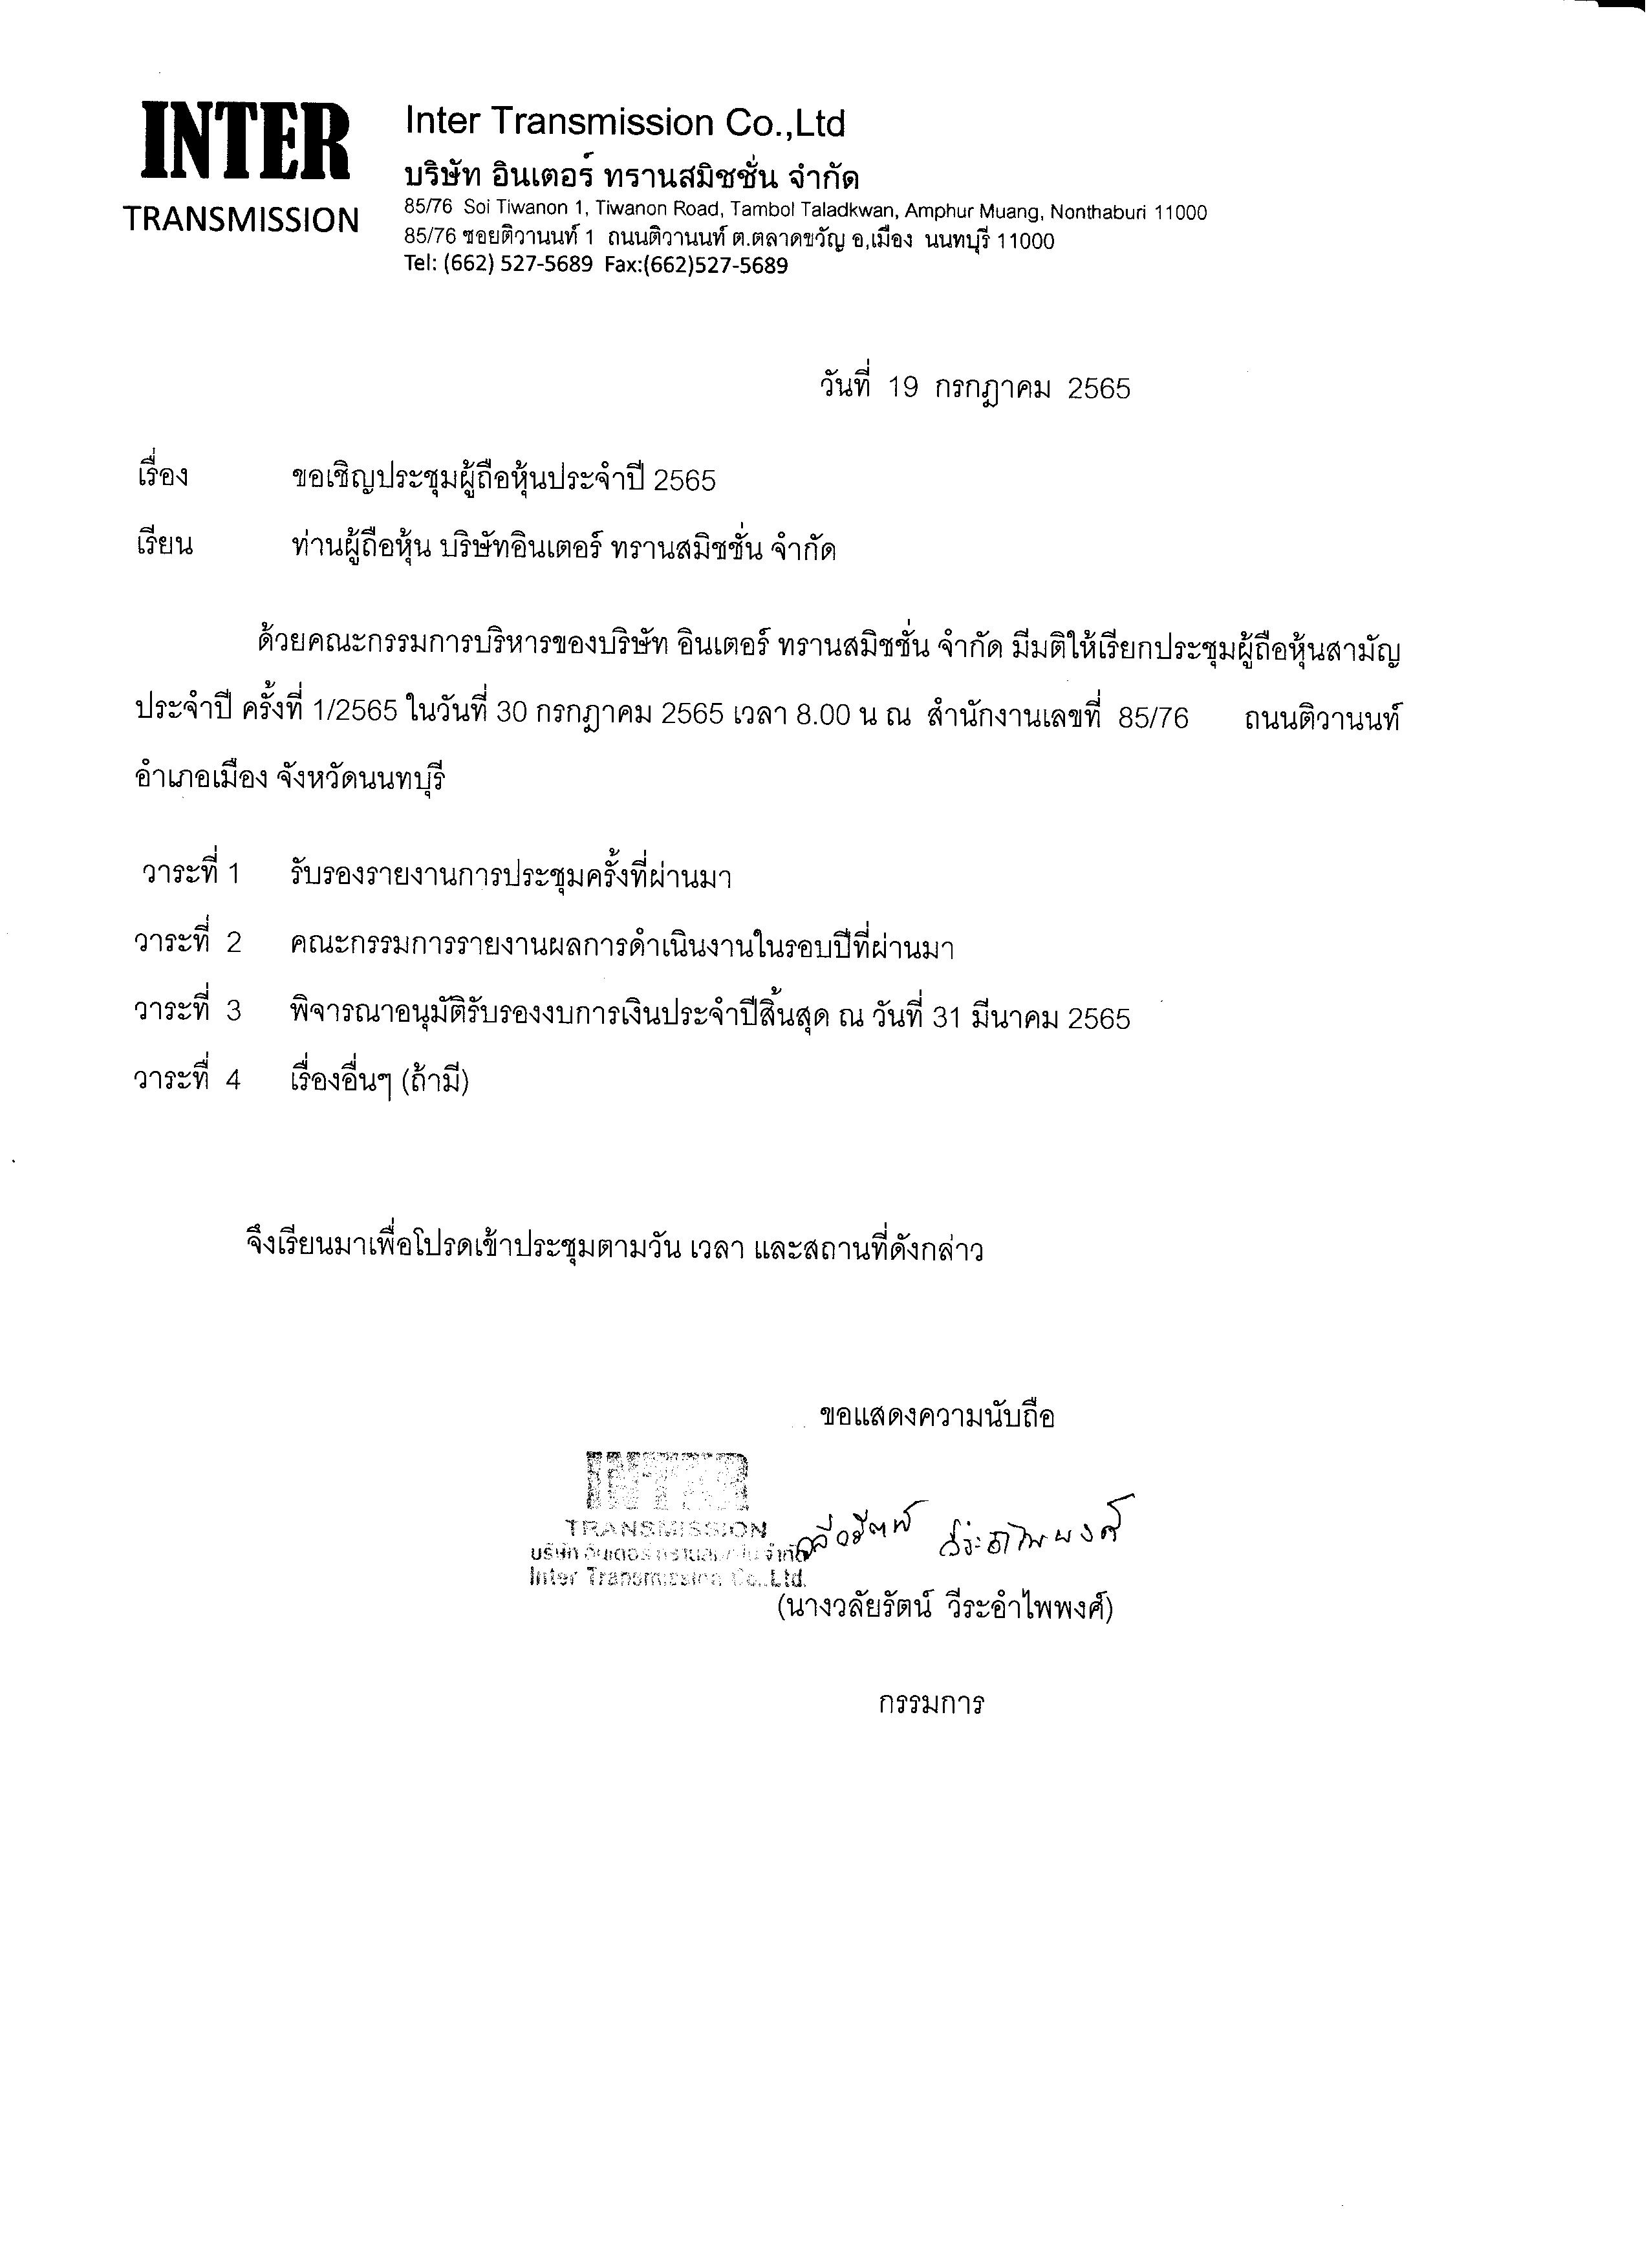 INTER
TRANSMISSION
Inter Transmission Co.,Ltd
บริษัท อินเตอร์ ทรานสมิชชั่น จำกัด
85/76 Soi Tiwanon 1, Tiwanon Road, Tambol Taladkwan, Amphur Muang, Nonthaburi 11000
85/76 ซอยติวานนท์ 1 ถนนติวานนท์ ต.ตลาดขวัญ อ,เมือง นนทบุรี 11000
Tel: (662) 527-5689 Fax:(662)527-5689
วันที่ 19 กรกฎาคม 2565
เรื่อง ขอเชิญประชุมผู้ถือหุ้นประจำปี 2565
เรียน ท่านผู้ถือหุ้น บริษัทอินเตอร์ ทรานสมิชชั่น จำกัด
ด้วยคณะกรรมการบริหารของบริษัท อินเตอร์ ทรานสมิชชั่น จำกัด มีมติให้เรียกประชุมผู้ถือหุ้นสามัญ
ประจำปี ครั้งที่ 1/2565 ในวันที่ 30 กรกฎาคม 2565 เวลา 8.00 น ณ สำนักงานเลขที่ 85/76 ถนนติวานนท์
อำเภอเมือง จังหวัดนนทบุรี
วาระที่ 1 รับรองรายงานการประชุมครั้งที่ผ่านมา
วาระที่ 2 คณะกรรมการรายงานผลการดำเนินงานในรอบปีที่ผ่านมา
วาระที่ 3 พิจารณาอนุมัติรับรองงบการเงินประจำปีสิ้นสุด ณ วันที่ 31 มีนาคม 2565
วาระที่ 4 เรื่องอื่นๆ (ถ้ามี)
จึงเรียนมาเพื่อโปรดเข้าประชุมตามวัน เวลา และสถานที่ดังกล่าว
ขอแสดงความนับถือ
INTER
TRANSMISSION
บริษัท อินเตอร์ ทรานสมิชชั่น จำกัด
Inter Transmission Co.,Ltd.
(นางวลัยรัตน์ วีระอำไพพงศ์)
กรรมการ